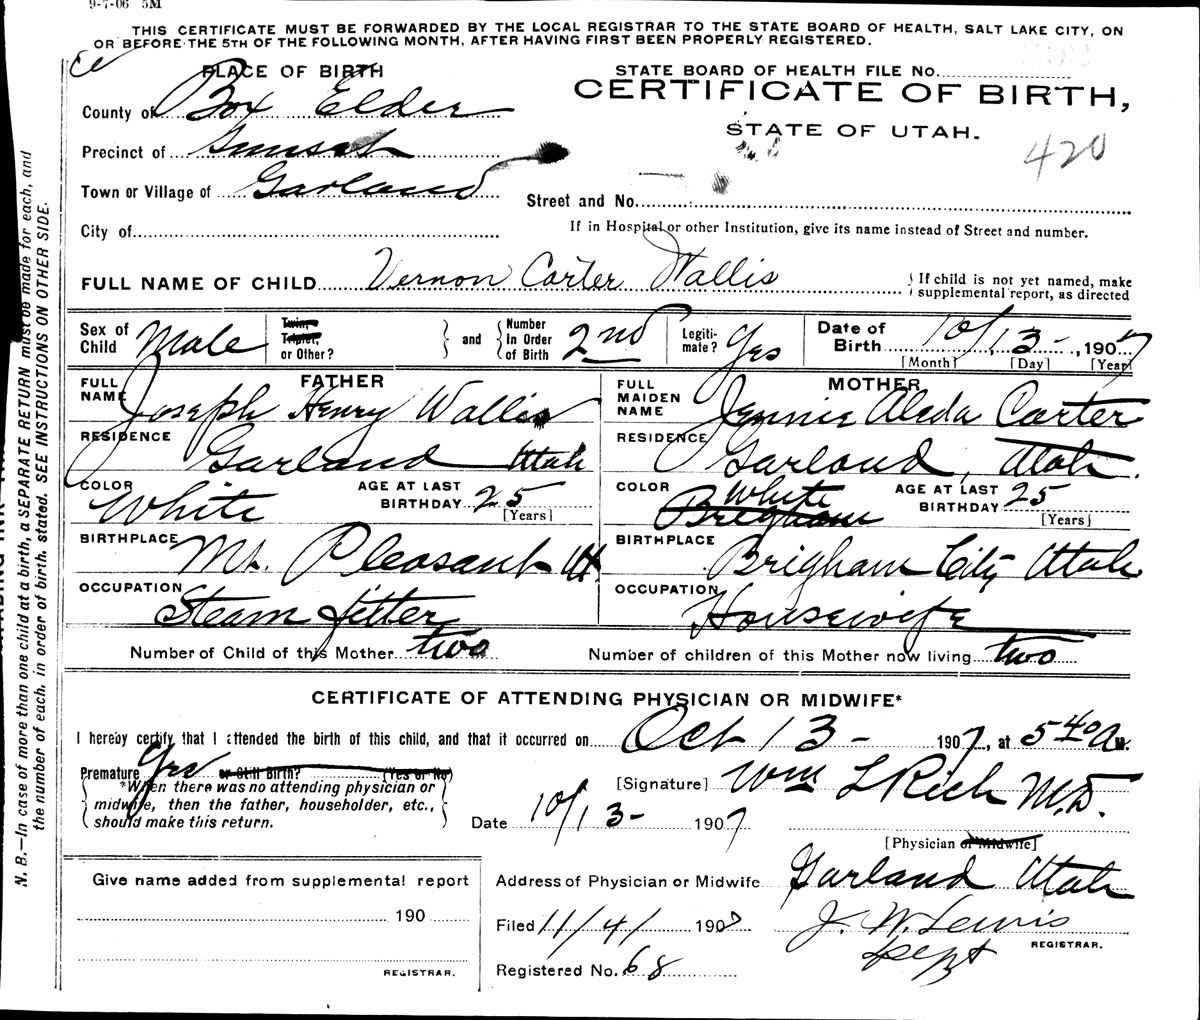 9-7-06 5M
THIS CERTIFICATE MUST BE FORWARDED BY THE LOCAL REGISTRAR TO THE STATE BOARD OF HEALTH, SALT LAKE CITY, ON
OR BEFORE THE 5TH OF THE FOLLOWING MONTH, AFTER HAVING FIRST BEEN PROPERLY REGISTERED.
PLACE OF BIRTH
STATE BOARD OF HEALTH FILE No.
CERTIFICATE OF BIRTH,
STATE OF UTAH.
420
County of Box Elder
Precinct of Sunset
Town or Village of Garland
Street and No.
City of
If in Hospital or other Institution, give its name instead of Street and number.
FULL NAME OF CHILD Vernon Carter Wallis
If child is not yet named, make
supplemental report, as directed
Sex of Child Male
Twin, Triplet, or Other?
and
Number In Order of Birth 2nd
Legiti- mate? Yes
Date of Birth 10/13-, 1907
[Month] [Day] [Year]
FATHER
FULL NAME Joseph Henry Wallis
RESIDENCE Garland Utah
COLOR White
AGE AT LAST BIRTHDAY 25
[Years]
BIRTHPLACE Mt. Pleasant Ut.
OCCUPATION Steam fitter
MOTHER
FULL MAIDEN NAME Jennie Aleda Carter
RESIDENCE Garland, Utah.
COLOR White
Brigham
AGE AT LAST BIRTHDAY 25
[Years]
BIRTHPLACE Brigham City Utah
OCCUPATION Housewife
Number of Child of this Mother two
Number of children of this Mother now living two
CERTIFICATE OF ATTENDING PHYSICIAN OR MIDWIFE*
I hereby certify that I attended the birth of this child, and that it occurred on Oct 13- 1907, at 5 40 A M.
Premature yes or Still Birth? (Yes or No)
*When there was no attending physician or
midwife, then the father, householder, etc.,
should make this return.
[Signature] Wm L Rich M.D.
Date 10/13- 1907
[Physician or Midwife]
Address of Physician or Midwife Garland Utah
Filed 11/4/ 1907
J. W. Lewis
Dept
REGISTRAR.
Registered No. 68
Give name added from supplemental report
190
REGISTRAR.
N. B.—In case of more than one child at a birth, a SEPARATE RETURN must be made for each, and
the number of each, in order of birth, stated. SEE INSTRUCTIONS ON OTHER SIDE.